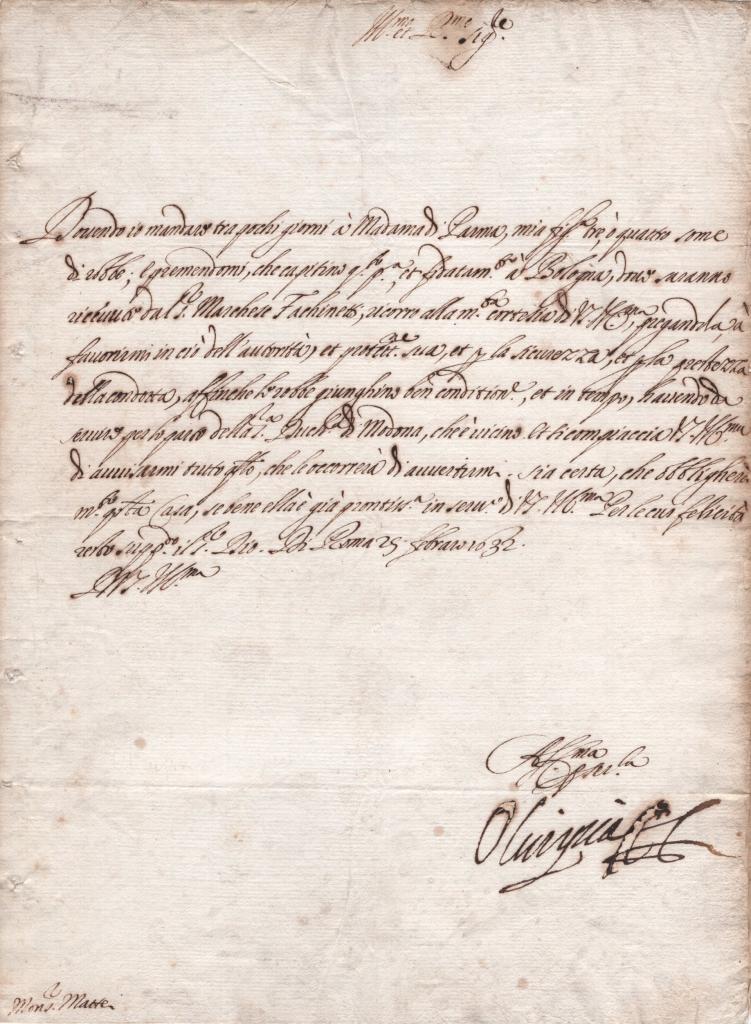 Ill.mo et R.mo Sig.re
Dovendo io mandare tra pochi giorni à Madama di Parma, mia fig.ra tre, ò quattro some
di robbe; e premendomi, che capitino q.to p.a, et fidatam.te à Bologna, dove saranno
ricevute dal S.r Marchese Fachinetti, ricorro alla m.ta cortesia di V.S. Ill.ma, pregandola à
favorirmi in ciò dell'autorità, et sua, et p la sicurezza, et p la prestezza
della condotta, affinche le robbe giunghino ben conditionate, et in tempo, havendo da
per lo stato della S.ra Duch.a di Modona, che è vicino. Et si compiaccia V.S. Ill.ma
di avvisarmi tutto q.llo, che le occorrerà di avvertirmi. sia certa, che obbligherà
m.to q.sta Casa, se bene ella è già prontiss.a in serv.o di V.S. Ill.ma Per le cui felicità
resto supp.do il S.r Dio. Di Roma 25 febraro 1632.
Di V.S. Ill.ma
Aff.ma
Olimpia
Mons.r Mattei